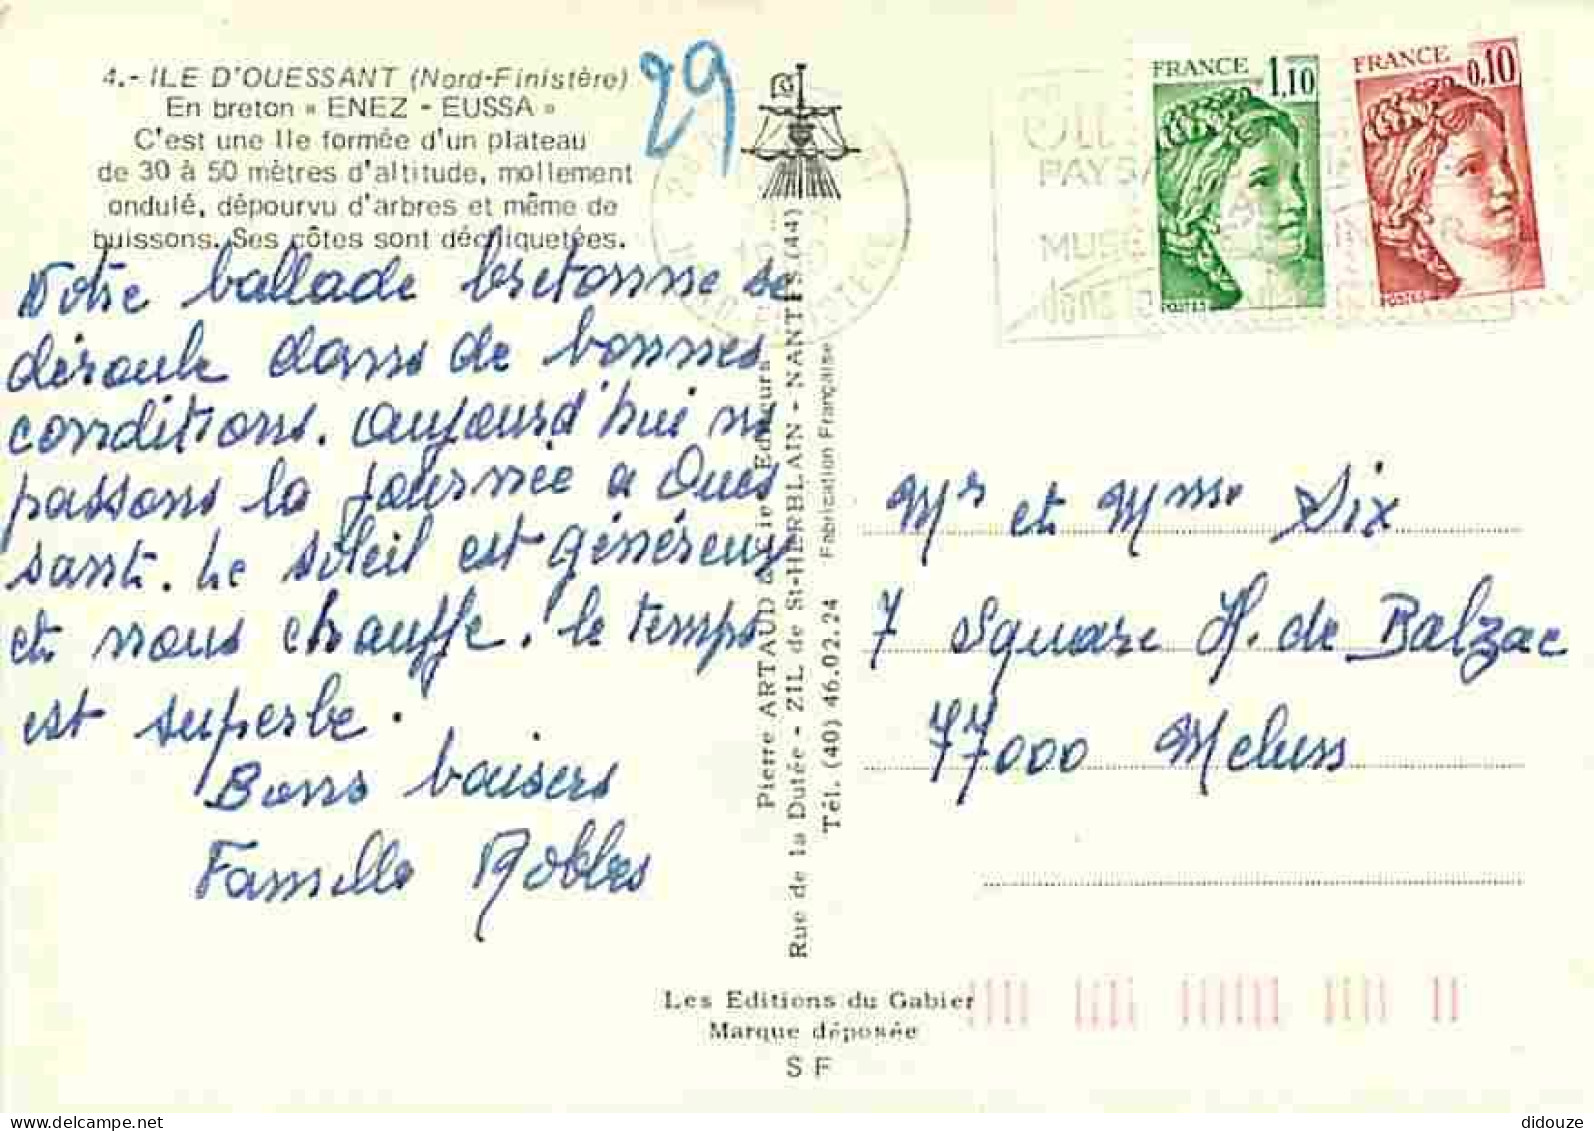 4.- ILE D'OUESSANT (Nord-Finistère)
En breton « ENEZ - EUSSA »
C'est une Ile formée d'un plateau
de 30 à 50 mètres d'altitude, mollement
ondulé, dépourvu d'arbres et même de
buissons. Ses côtes sont déchiquetées.
29
FRANCE 1,10
POSTES
FRANCE 0,10
POSTES
Notre ballade bretonne se
déroule dans de bonnes
conditions. Aujourd'hui ns
passons la journée a Oues
sant. Le soleil est généreux
et nous chauffe. Le temps
est superbe.
Bons baisers
Famille Robles
Pierre ARTAUD & Cie Editeurs
Rue de la Dutée - ZIL de St-HERBLAIN - NANTES (44)
Tél. (40) 46.02.24 Fabrication Française
Mr et Mme Dix
7 Square H. de Balzac
77000 Melun
Les Editions du Gabier
Marque déposée
S F
delcampe.net
didouze